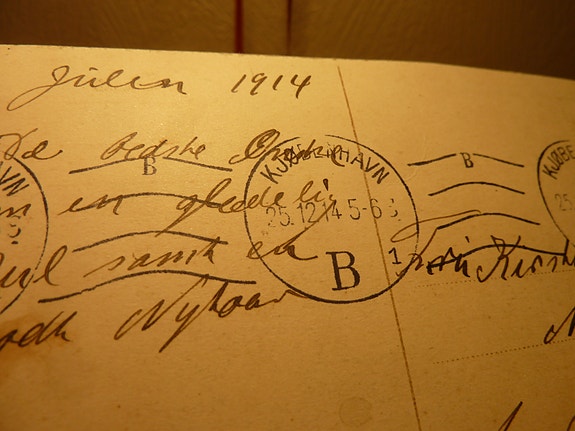 Julen 1914
De bedste Ønsker
om en glædelig
Jul samt en
godt Nytaar
KJØBENHAVN
25.12.14 5-6
B
1
B
B
Kirst
KJØBE
25